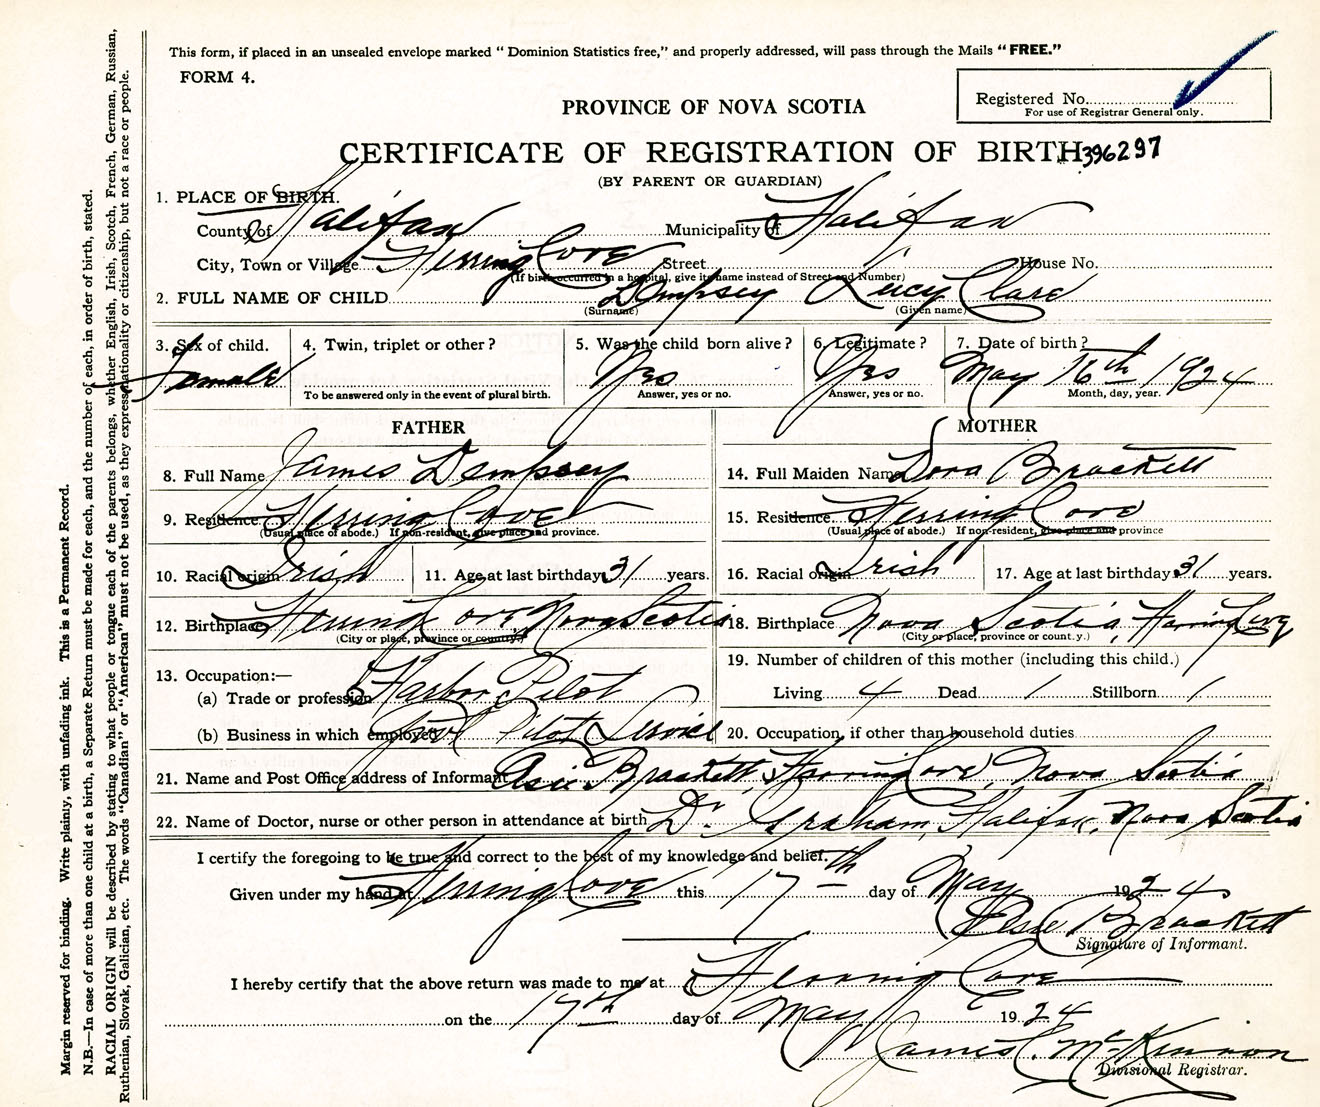 This form, if placed in an unsealed envelope marked “ Dominion Statistics free,” and properly addressed, will pass through the Mails “ FREE.”
FORM 4.
Registered No.
For use of Registrar General only.
PROVINCE OF NOVA SCOTIA
CERTIFICATE OF REGISTRATION OF BIRTH 396297
(BY PARENT OR GUARDIAN)
1. PLACE OF BIRTH.
County of Halifax Municipality of Halifax
City, Town or Village Herring Cove Street House No.
(If birth occurred in a hospital, give its name instead of Street and Number)
2. FULL NAME OF CHILD Dempsey Lucy Clare
(Surname) (Given name)
3. Sex of child. 4. Twin, triplet or other? 5. Was the child born alive? 6. Legitimate? 7. Date of birth?
Female Yes Yes May 16th 1924
To be answered only in the event of plural birth. Answer, yes or no. Answer, yes or no. Month, day, year.
FATHER MOTHER
8. Full Name James Dempsey 14. Full Maiden Name Dora Brackett
9. Residence Herring Cove 15. Residence Herring Cove
(Usual place of abode.) If non-resident, give place and province. (Usual place of abode.) If non-resident, give place and province
10. Racial origin Irish 11. Age at last birthday 31 years. 16. Racial origin Irish 17. Age at last birthday 31 years.
12. Birthplace Herring Cove, Nova Scotia 18. Birthplace Nova Scotia, Herring Cove
(City or place, province or country.) (City or place, province or count.y.)
13. Occupation:— 19. Number of children of this mother (including this child.)
(a) Trade or profession Harbor Pilot Living 4 Dead 1 Stillborn 1
(b) Business in which employed Pilot Service 20. Occupation, if other than household duties
21. Name and Post Office address of Informant Elsie Brackett, Herring Cove, Nova Scotia
22. Name of Doctor, nurse or other person in attendance at birth Dr. Graham, Halifax, Nova Scotia
I certify the foregoing to be true and correct to the best of my knowledge and belief.
Given under my hand at Herring Cove this 17th day of May 1924
Elsie Brackett
Signature of Informant.
I hereby certify that the above return was made to me at Herring Cove
on the 17th day of May 1924
James C. McKinnon
Divisional Registrar.
Margin reserved for binding. Write plainly, with unfading ink. This is a Permanent Record.
N.B.—In case of more than one child at a birth, a Separate Return must be made for each, and the number of each, in order of birth, stated.
RACIAL ORIGIN will be described by stating to what people or tongue each of the parents belongs, whether English, Irish, Scotch, French, German, Russian,
Ruthenian, Slovak, Galician, etc. The words “Canadian” or “American” must not be used, as they express nationality or citizenship, but not a race or people.